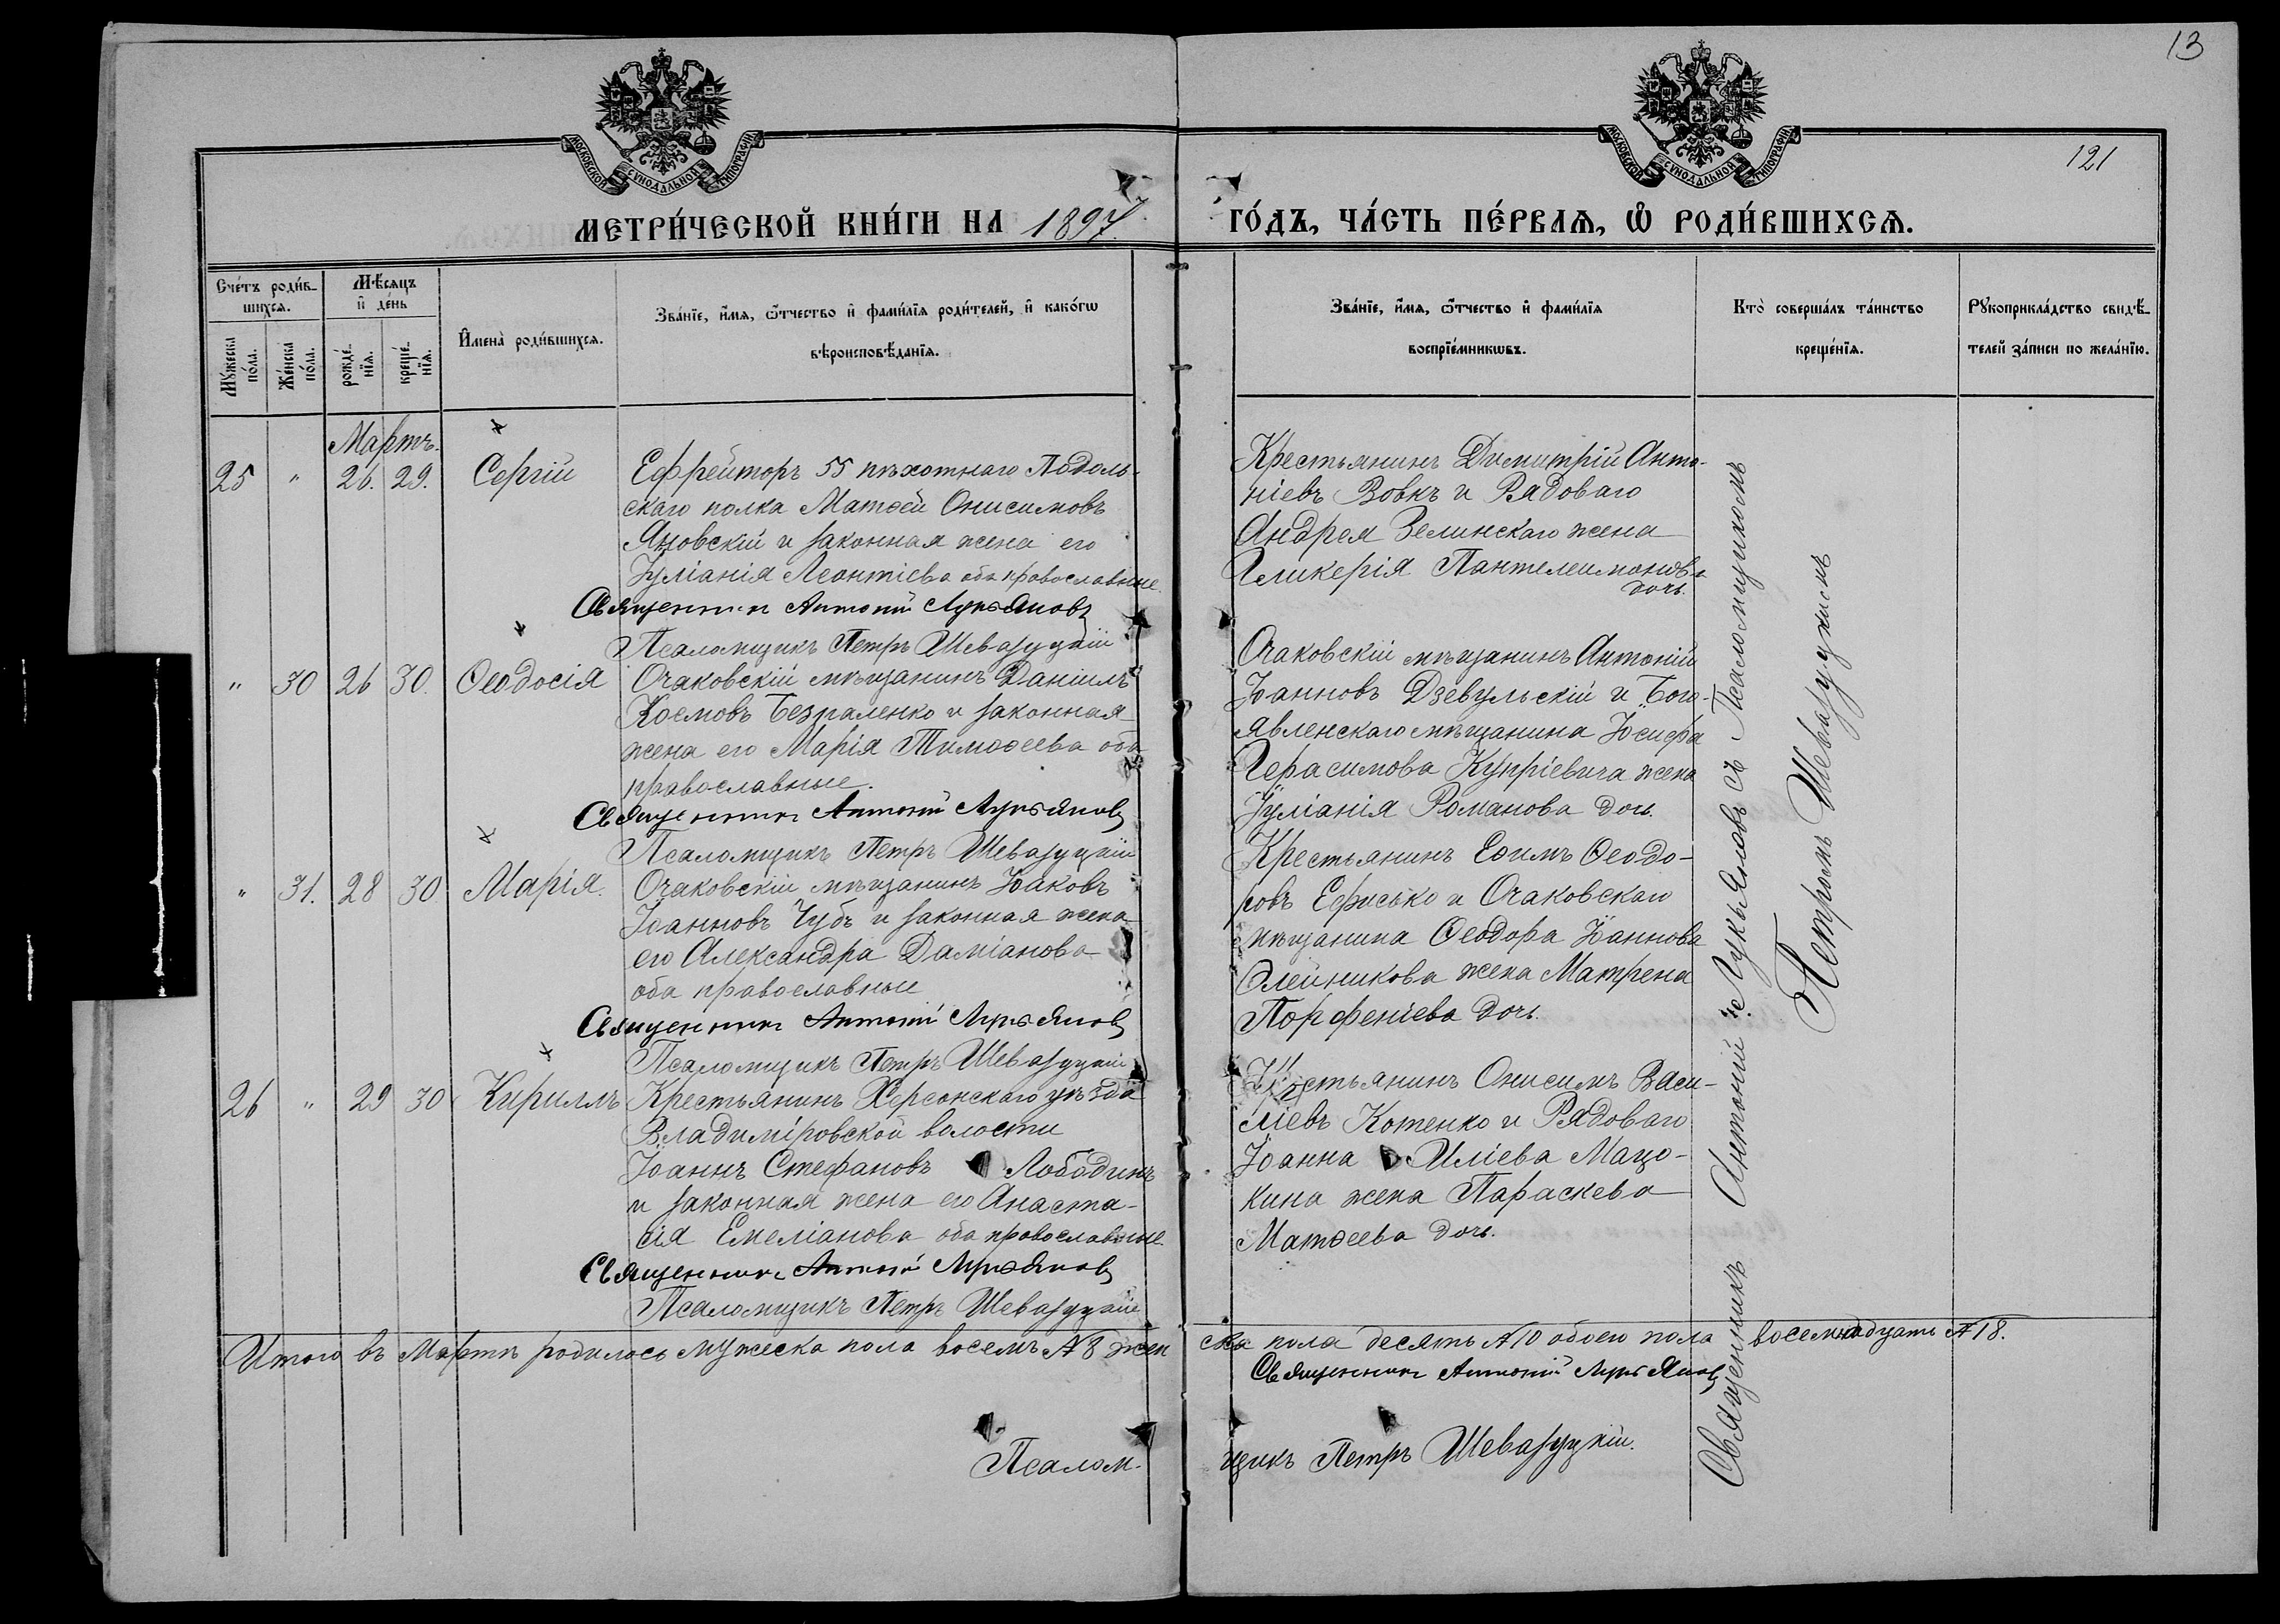 13
МОСКОВСКОЙ СѴНОДАЛЬНОЙ ТИПОГРАФІИ
МОСКОВСКОЙ СѴНОДАЛЬНОЙ ТИПОГРАФІИ
121
МЕТРИ́ЧЕСКОЙ КНИ́ГИ НА 1897. ГО́ДЪ, ЧА́СТЬ ПЕ́РВАѦ, Ѡ҆ РОДИ́ВШИХСѦ.
Сче́тъ роди́в-
шихсѧ.
Мꙋ́жеска по́ла.
Же́нска по́ла.
Мѣ́сѧцъ
и҆ де́нь
рожде́-
нїѧ.
креще́-
нїѧ.
И҆мена̀ роди́вшихсѧ.
Зва́нїе, и҆́мѧ, ѻ҆́тчество и҆ фами́лїѧ роди́телей, и҆ како́гѡ
вѣроисповѣ́данїѧ.
Зва́нїе, и҆́мѧ, ѻ҆́тчество и҆ фами́лїѧ
воспрїе́мникѡвъ.
Кто̀ соверша́лъ та́инство
креще́нїѧ.
Рꙋкоприкла́дство свидѣ́-
телей за́писи по жела́нїю.
Мартъ.
25 " 26. 29. Сергій
Ефрейторъ 55 пѣхотнаго Подоль-
скаго полка Матѳей Онисимовъ
Яновскій и законная жена его
Іуліанія Леонтіева оба православные.
Священникъ Антоній Лукьяновъ
Псаломщикъ Петръ Шевазуцкій
Крестьянинъ Димитрій Анто-
ніевъ Вовкъ и Рядоваго
Андрея Зелинскаго жена
Гликерія Пантелеимонова
дочь.
" 30 26 30. Ѳеодосія
Очаковскій мѣщанинъ Даніилъ
Космовъ Безпаленко и законная
жена его Марія Тимоѳеева оба
православные.
Священникъ Антоній Лукьяновъ
Псаломщикъ Петръ Шевазуцкій
Очаковскій мѣщанинъ Антоній
Іоанновъ Дзевульскій и Бого-
явленскаго мѣщанина Іосифа
Герасимова Купріевича жена
Іуліанія Романова дочь.
" 31. 28 30 Марія.
Очаковскій мѣщанинъ Іаковъ
Іоанновъ Чубъ и законная жена
его Александра Даміанова
оба православные
Священникъ Антоній Лукьяновъ
Псаломщикъ Петръ Шевазуцкій
Крестьянинъ Еѳимъ Ѳеодо-
ровъ Ефисько и Очаковскаго
мѣщанина Ѳеодора Іоаннова
Олейникова жена Матрена
Порфеніева дочь.
26 " 29 30 Кириллъ
Крестьянинъ Херсонскаго уѣзда
Владиміровской волости
Іоаннъ Стефановъ Лободинъ
и законная жена его Анаста-
сія Емеліанова оба православные.
Священникъ Антоній Лукьяновъ
Псаломщикъ Петръ Шевазуцкій
Крестьянинъ Онисимъ Васи-
ліевъ Котенко и Рядоваго
Іоанна Иліева Мацо-
кина жена Параскева
Матѳеева дочь.
Священникъ Антоній Лукьяновъ съ Псаломщикомъ
Петромъ Шевазуцкимъ
Итого въ Мартѣ родилось мужеска пола восемь № 8 жен ска пола десять № 10 обоего пола восемнадцать № 18.
Священникъ Антоній Лукьяновъ
Псалом- щикъ Петръ Шевазуцкій.